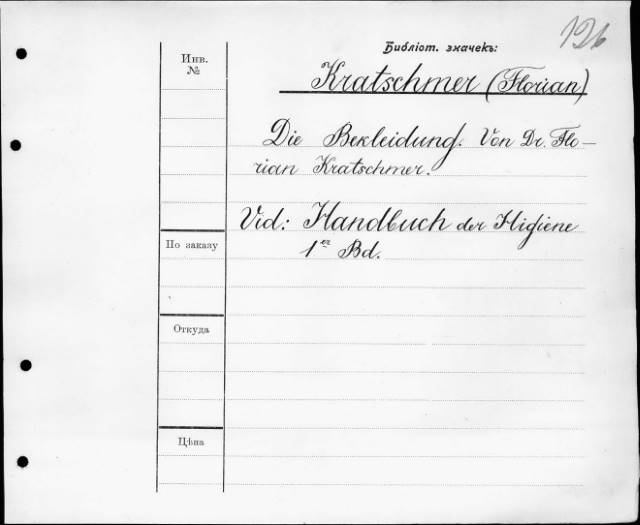 126
Библіот. значекъ:
Инв.
№
Kratschmer (Florian)
Die Bekleidung. Von Dr. Flo—
rian Kratschmer.
Vid: Handbuch der Higiene
1er Bd.
По заказу
Откуда
Цѣна